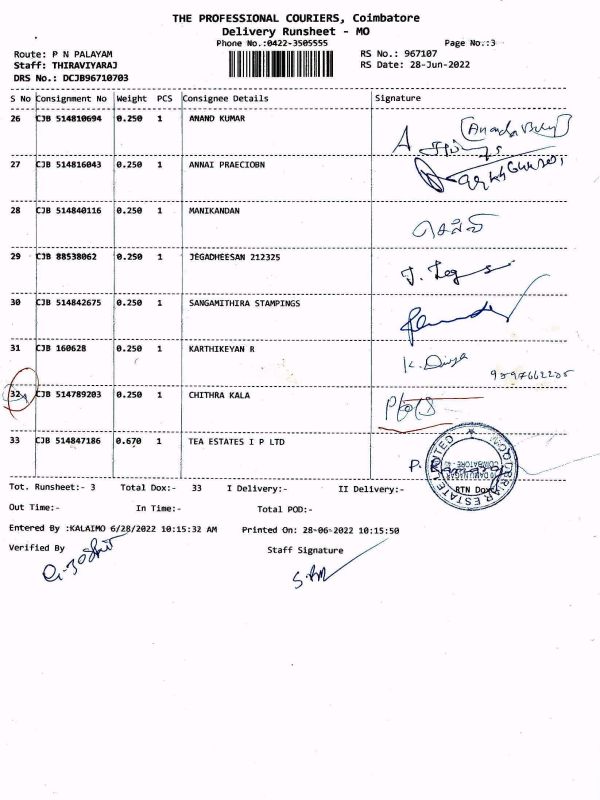 THE PROFESSIONAL COURIERS, Coimbatore
Delivery Runsheet - MO
Phone No.:0422-3505555
Page No.:3
Route: P N PALAYAM
RS No.: 967107
Staff: THIRAVIYARAJ
RS Date: 28-Jun-2022
DRS No.: DCJB96710703
S No Consignment No Weight PCS Consignee Details Signature
26 CJB 514810694 0.250 1 ANAND KUMAR
27 CJB 514816043 0.250 1 ANNAI PRAECIOBN
28 CJB 514840116 0.250 1 MANIKANDAN
29 CJB 88538062 0.250 1 JEGADHEESAN 212325
30 CJB 514842675 0.250 1 SANGAMITHIRA STAMPINGS
31 CJB 160628 0.250 1 KARTHIKEYAN R K. Divya
32 CJB 514789203 0.250 1 CHITHRA KALA
33 CJB 514847186 0.670 1 TEA ESTATES I P LTD P.
Tot. Runsheet:- 3 Total Dox:- 33 I Delivery:- II Delivery:- RTN Dox:-
Out Time:- In Time:- Total POD:-
Entered By :KALAIMO 6/28/2022 10:15:32 AM Printed On: 28-06-2022 10:15:50
Verified By Staff Signature